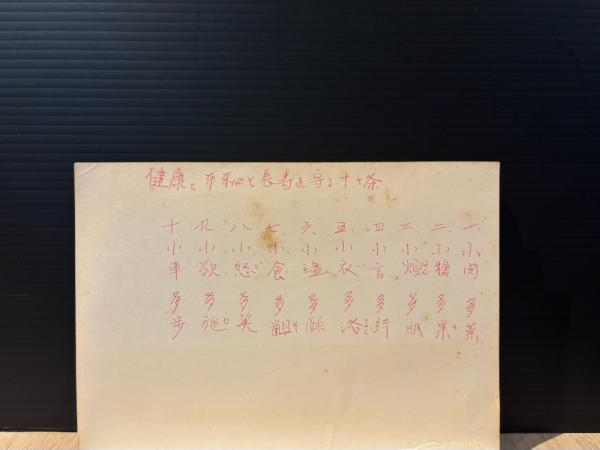 健康と平和と長寿を守る十ヶ条
一、小肉 多菜
二、小糖 多果
三、小煩 多眠
四、小言 多行
五、小衣 多浴
六、小塩 多酢
七、小食 多齟
八、小怒 多笑
九、小欲 多施
十、小車 多歩